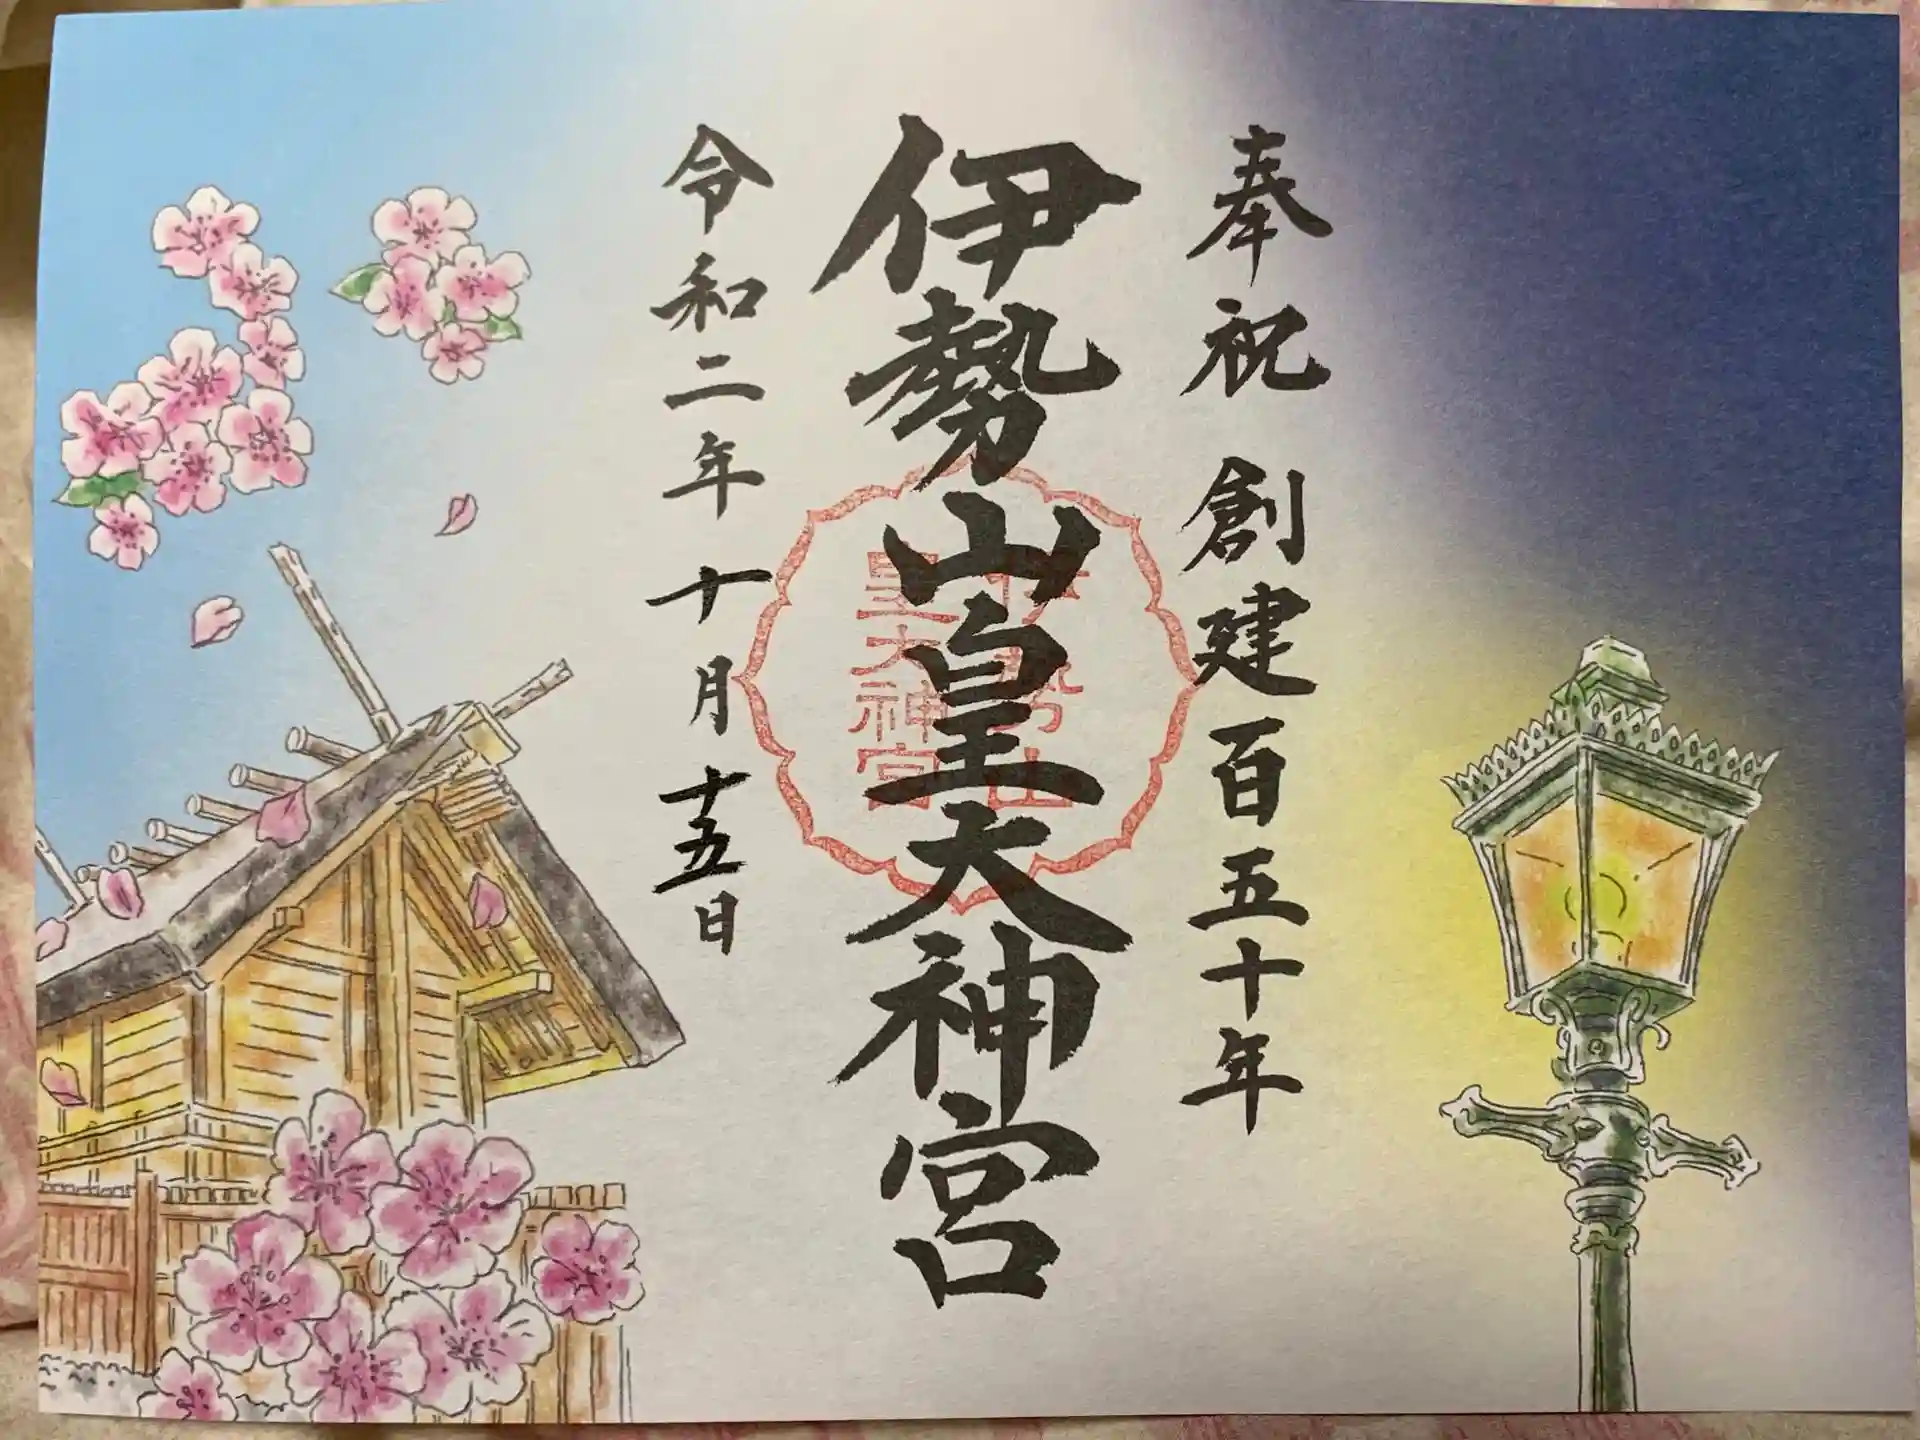 奉祝 創建百五十年
伊勢山皇大神宮
伊勢山
皇大神宮
令和二年十月十五日